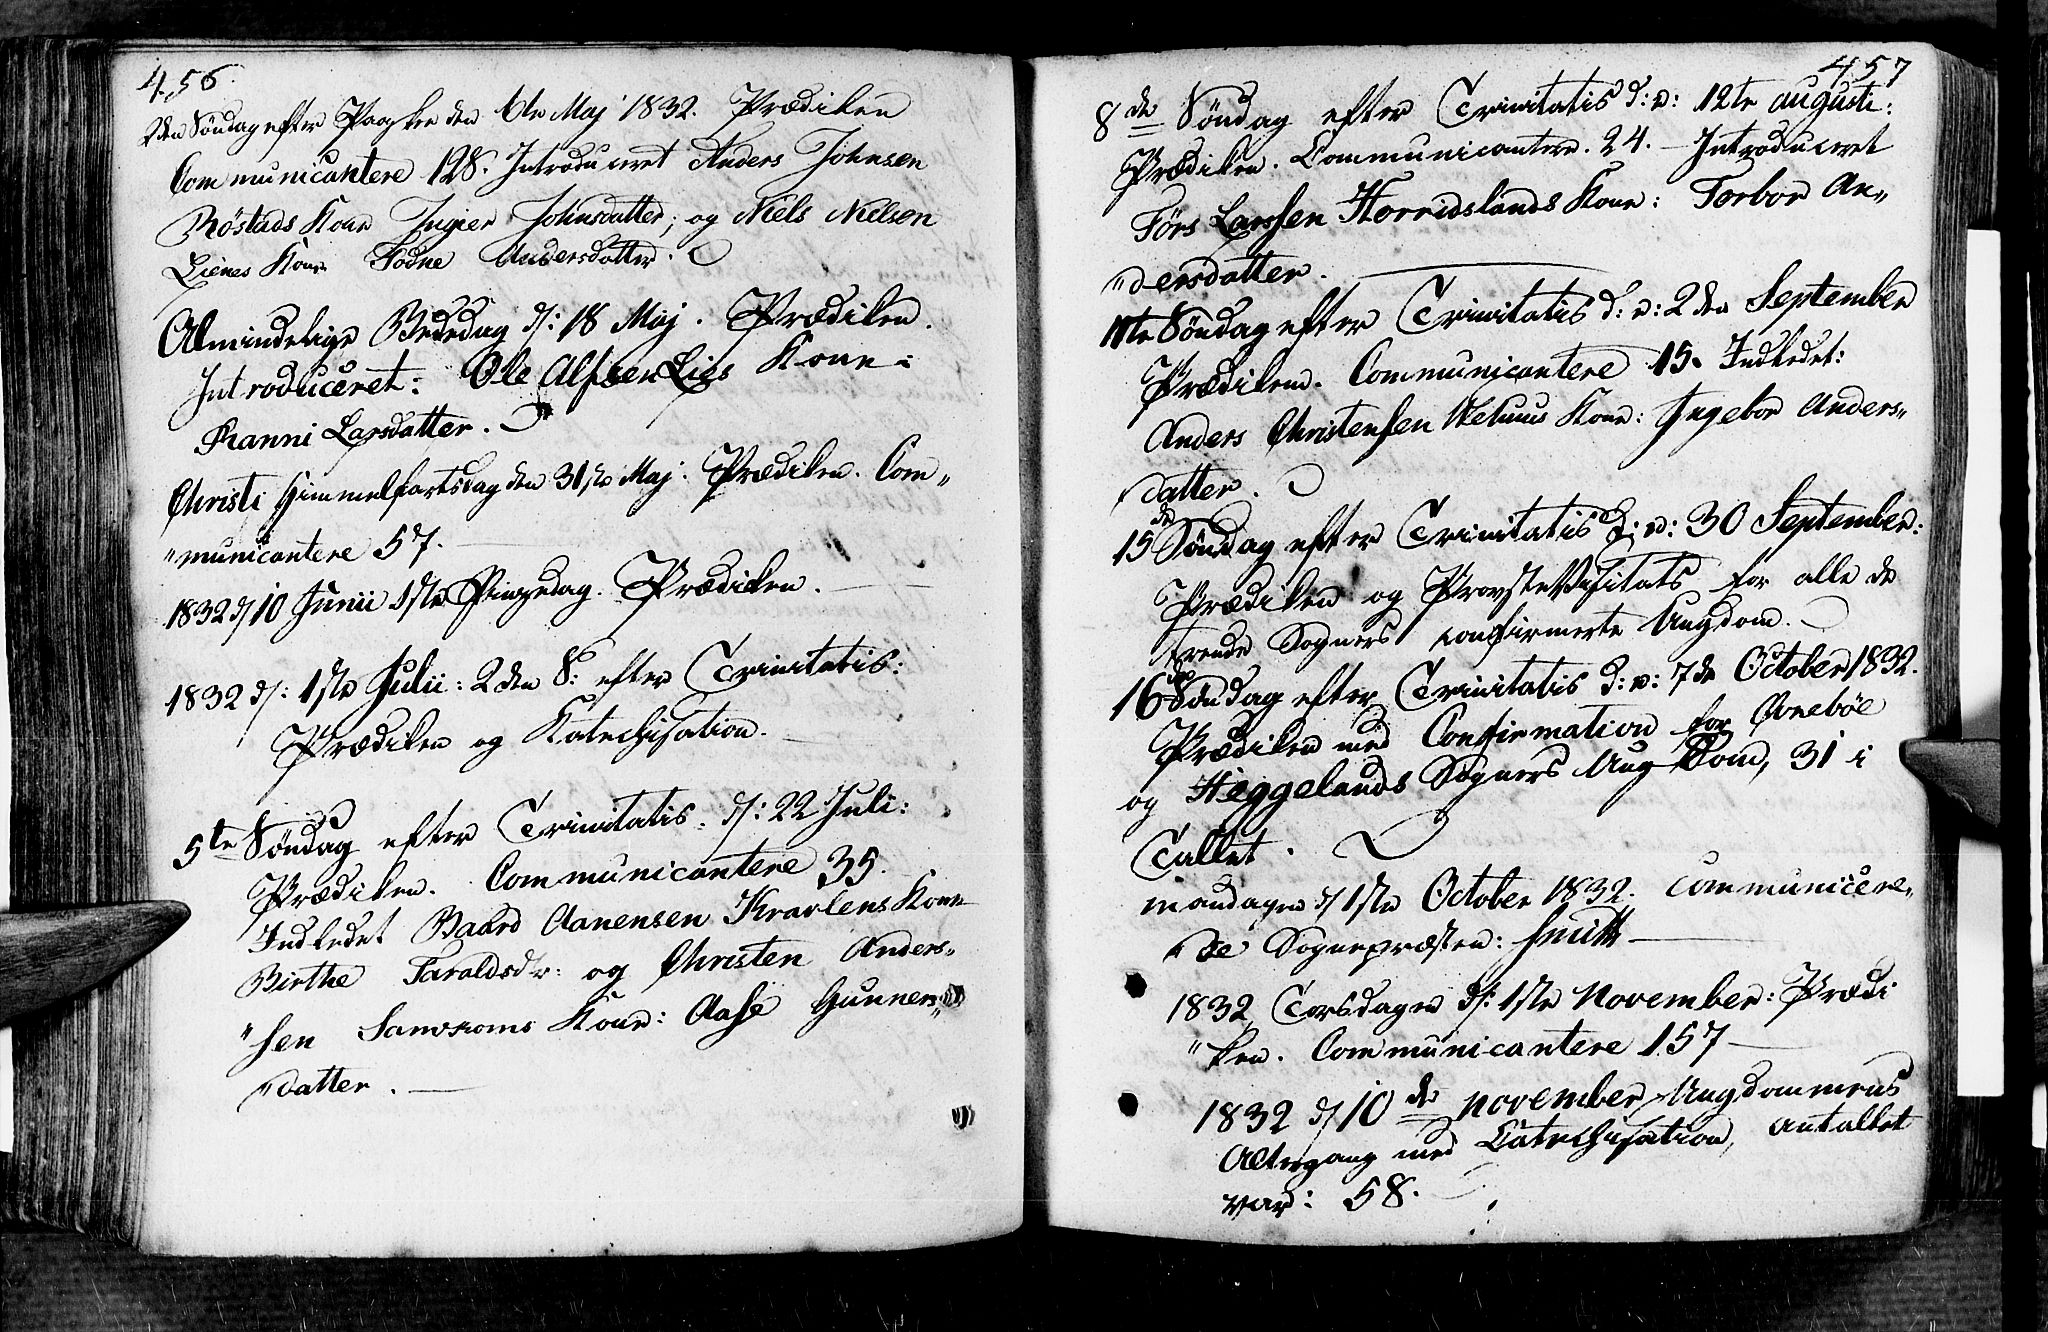 456.
2den Søndag efter Paaske den 6te Maj 1832. Prædiken
Communicantere 128. Introduceret Anders Johnsen
Røstads Kone Ingier Johnsdatter, og Niels Nielsen
Lienes Kone Todne Andersdatter.
Almindelige Bededag d: 18 Maj. Prædiken.
Introduceret: Ole Alfsen Lies Kone:
Ranni Larsdatter.
Christi Himmelfartsdag den 31te Maj: Prædiken. Com„
„municantere 57.
1832 d 10 Junii 1ste Pingsedag. Prædiken.
1832 d: 1ste Julii: 2den S: efter Trinitatis:
Prædiken og Katechisation.
5te Søndag efter Trinitatis. d: 22 Juli:
Prædiken. Communicantere 35.
Indledet Baard Aanensen Kravlens Kone
Birthe Taraldsdr: og Christen Anders„
„sen Kone: Aase Gunners„
„datter.
457
8de Søndag efter Trinitatis d: e: 12te augusti:
Prædiken. Communicantere. 24. – Introduceret
Førs Larssen Horridslands Kone: Torbor An„
„dersdatter.
11te Søndag efter Trinitatis d: e: 2den September
Prædiken. Communicantere 15. Indledet:
Anders Christensen Kone: Ingebor Anders„
„datter.
15de Søndag efter Trinitatis d: e: 30 September:
Prædiken og ProvsteVisitats for alle de
trende Sogners confirmerte Ungdom.
16de Søndag efter Trinitatis d: e: 7de October 1832.
Prædiken med Confirmation for Ovnebøe
og Heggelands Sogners UngDom, 31 i
Tallet.
mandagen d 1ste October 1832. communicere„
„de Sognepræsten: Smitt
1832 Torsdagen d: 1ste November: Prædi
„ken. Communicantere 157
1832 d 10de November, Ungdommens
Altergang med Catechisation, antallet
var: 58.